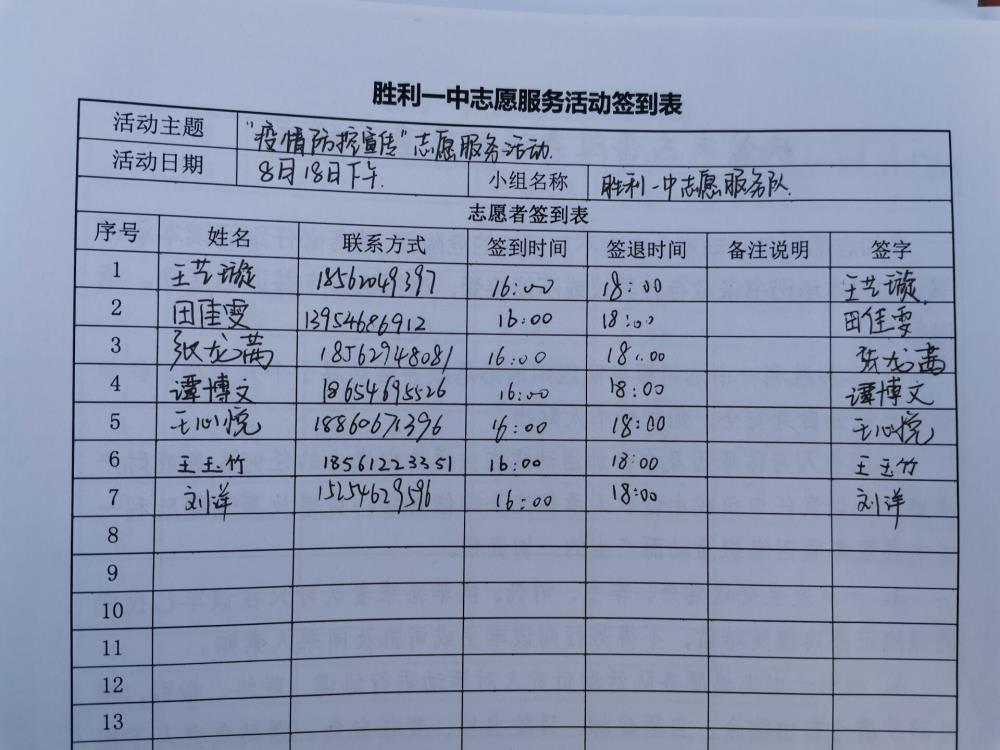 胜利一中志愿服务活动签到表
活动主题 "疫情防控宣传"志愿服务活动.
活动日期 8月18日下午. 小组名称 胜利一中志愿服务队.
志愿者签到表
序号 姓名 联系方式 签到时间 签退时间 备注说明 签字
1 王艺璇 18562049397 16:00 18:00 王艺璇.
2 田佳雯 13954686912 16:00 18:00 田佳雯
3 张龙茜 18562948081 16:00 18:00 张龙茜
4 谭博文 18654695526 16:00 18:00 谭博文
5 王心悦 18860671396 16:00 18:00 王心悦
6 王玉竹 18561223351 16:00 18:00 王玉竹
7 刘洋 15254629596 16:00 18:00 刘洋
8
9
10
11
12
13